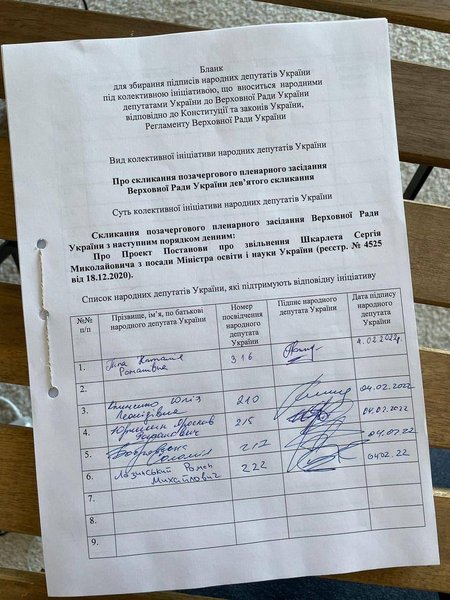 Бланк
для збирання підписів народних депутатів України
під колективною ініціативою, що вноситься народними
депутатами України до Верховної Ради України
відповідно до Конституції та законів України,
Регламенту Верховної Ради України
Вид колективної ініціативи народних депутатів України
Про скликання позачергового пленарного засідання
Верховної Ради України дев’ятого скликання
Суть колективної ініціативи народних депутатів України
Скликання позачергового пленарного засідання Верховної Ради
України з наступним порядком денним:
Про Проект Постанови про звільнення Шкарлета Сергія
Миколайовича з посади Міністра освіти і науки України (реєстр. № 4525
від 18.12.2020).
Список народних депутатів України, які підтримують відповідну ініціативу
№№ п/п Прізвище, ім’я, по батькові народного депутата України Номер посвідчення народного депутата України Підпис народного депутата України Дата підпису народного депутата України
1. Піпа Наталія Романівна 316 4.02.2022
2.
3. Юлія Леонідівна 210 04.02.2022
4. Юрчишин Ярослав Романович 215 04.02.2022
5. Бобровська Соломія 217 04.02.22
6. Лозинський Роман Михайлович 222 04.02.22
7.
8.
9.